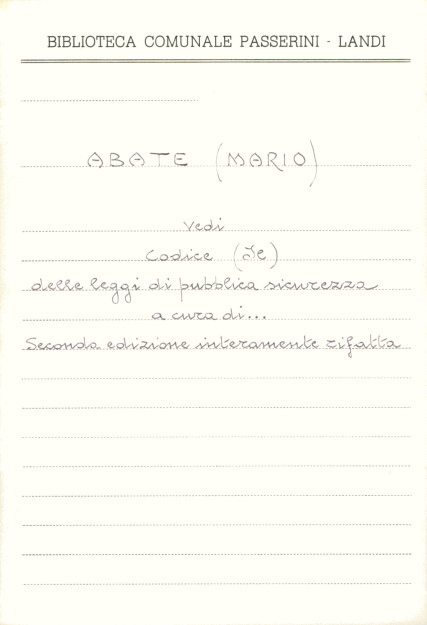 BIBLIOTECA COMUNALE PASSERINI - LANDI
ABATE (MARIO)
Vedi
Codice (Il)
delle leggi di pubblica sicurezza
a cura di...
Seconda edizione interamente rifatta